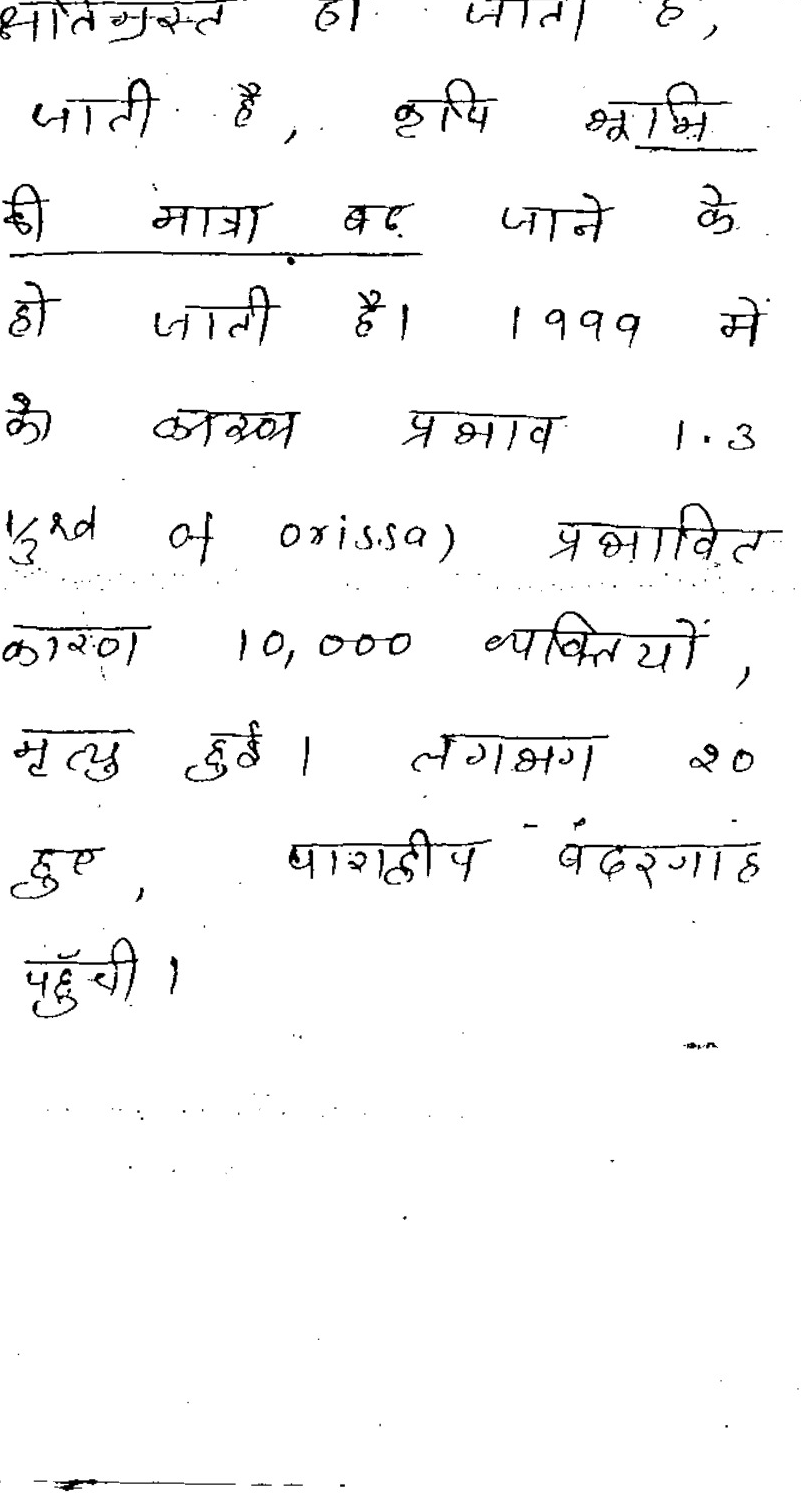 क्षतिग्रस्त हो जाता है,
जाती है, कृषि भूमि
की मात्रा बढ़ जाने के
हो जाती है। 1999 में
के कारण प्रभाव 1.3
1/3rd of orissa) प्रभावित
कारण 10,000 व्यक्तियों,
मृत्यु हुई। लगभग 20
हुए, पाराद्वीप बंदरगाह
पहुँची।